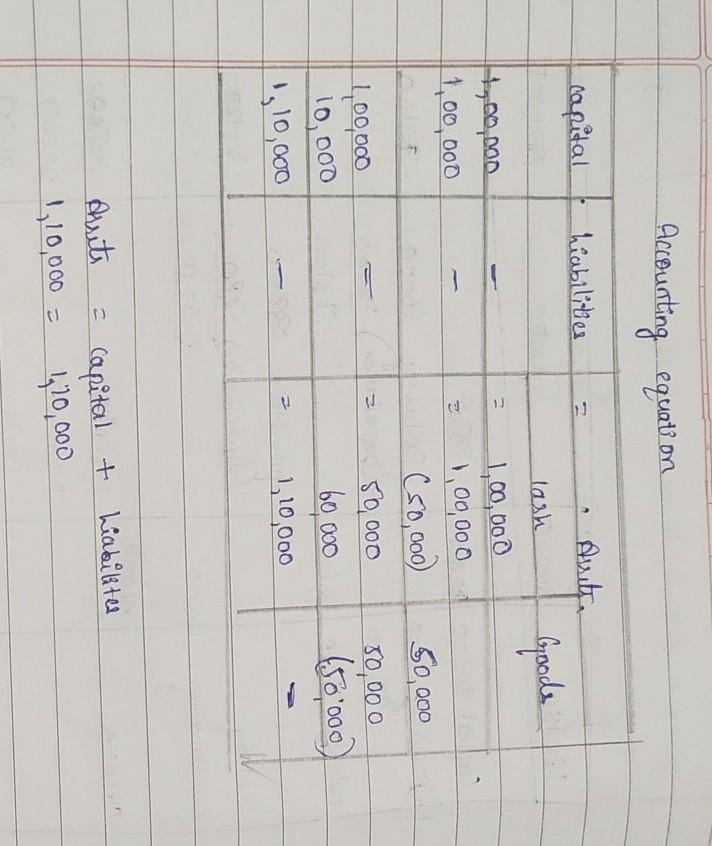 Accounting equation
Capital . Liabilities = . Assets
Cash Goods
1,00,000 - = 1,00,000
1,00,000 - = 1,00,000
(50,000) 50,000
1,00,000 = = 50,000 50,000
10,000 60,000 (50,000)
1,10,000 - = 1,10,000 -
Assets = Capital + Liabilites
1,10,000 = 1,10,000